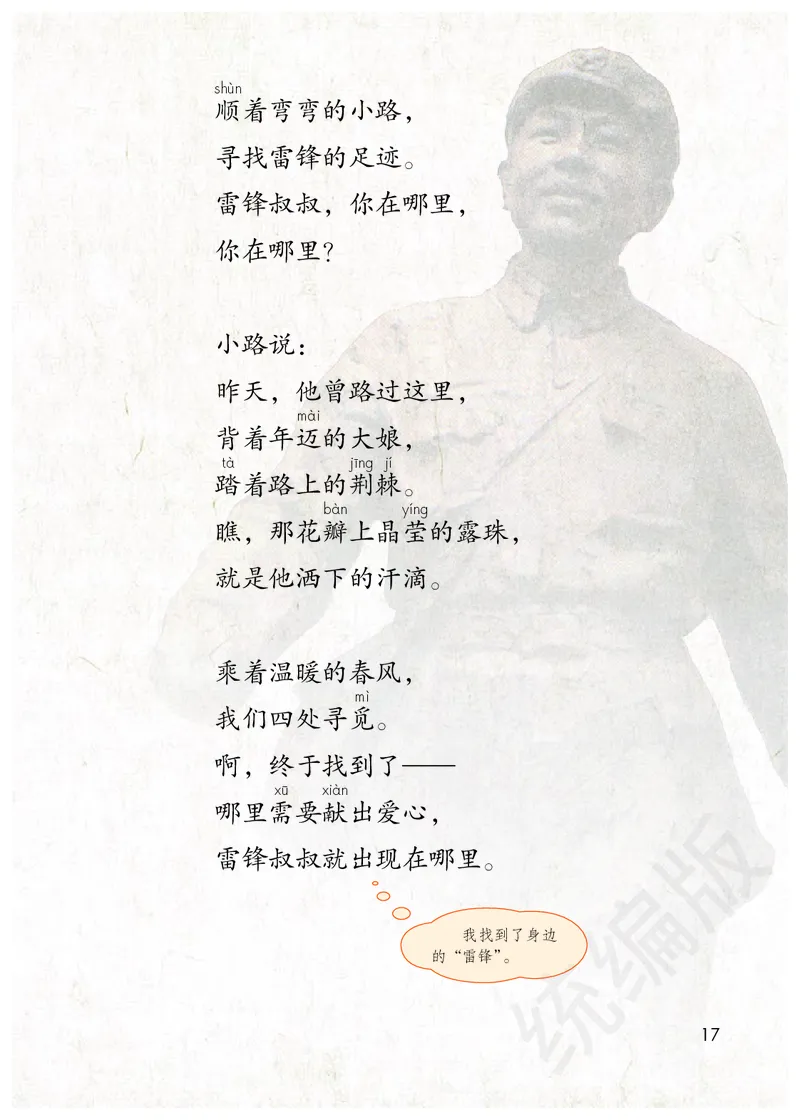 shùn
顺着弯弯的小路，
寻找雷锋的足迹。
雷锋叔叔，你在哪里，
你在哪里？
小路说：
昨天，他曾路过这里，
mài
背着年迈的大娘，
tà jīng jí
踏着路上的荆棘。
bàn yíng
瞧，那花瓣上晶莹的露珠，
就是他洒下的汗滴。
乘着温暖的春风，
mì
我们四处寻觅。
啊，终于找到了——
xū xiàn
哪里需要献出爱心，
雷锋叔叔就出现在哪里。
我找到了身边
的“雷锋”。
统编版
17